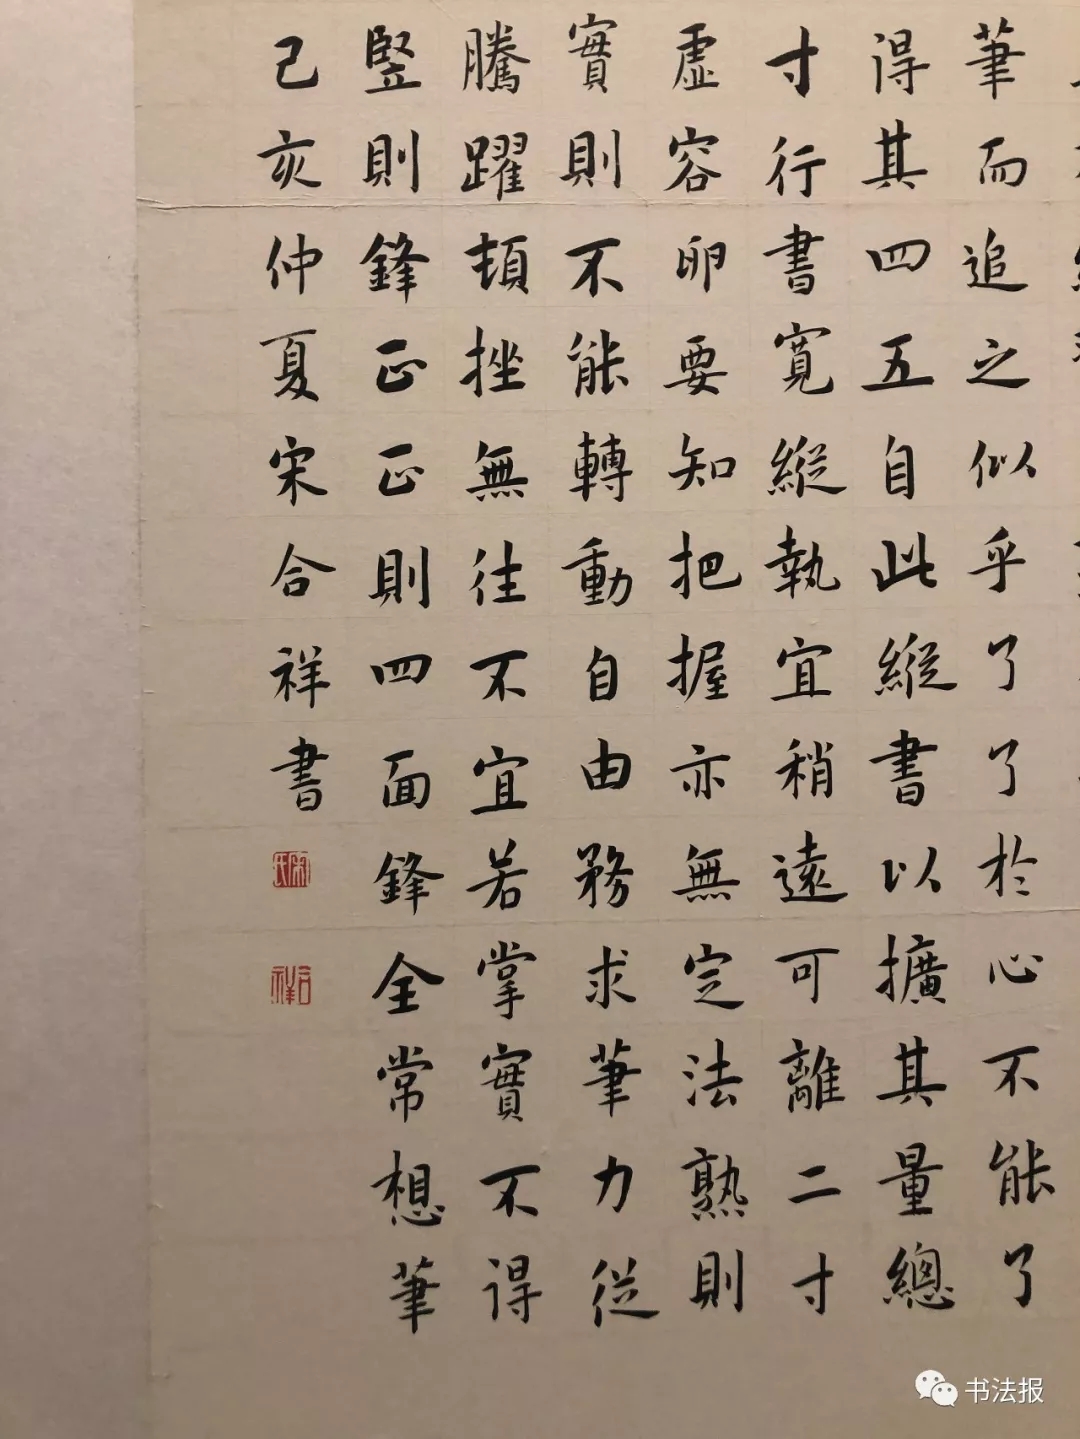 筆而追之似乎了了於心不能了
得其四五自此縱書以擴其量總
寸行書寬縱執宜稍遠可離二寸
虛容卵要知把握亦無定法熟則
實則不能轉動自由務求筆力從
騰躍頓挫無往不宜若掌實不得
豎則鋒正正則四面鋒全常想筆
己亥仲夏宋合祥書
宋氏
合祥
书法报